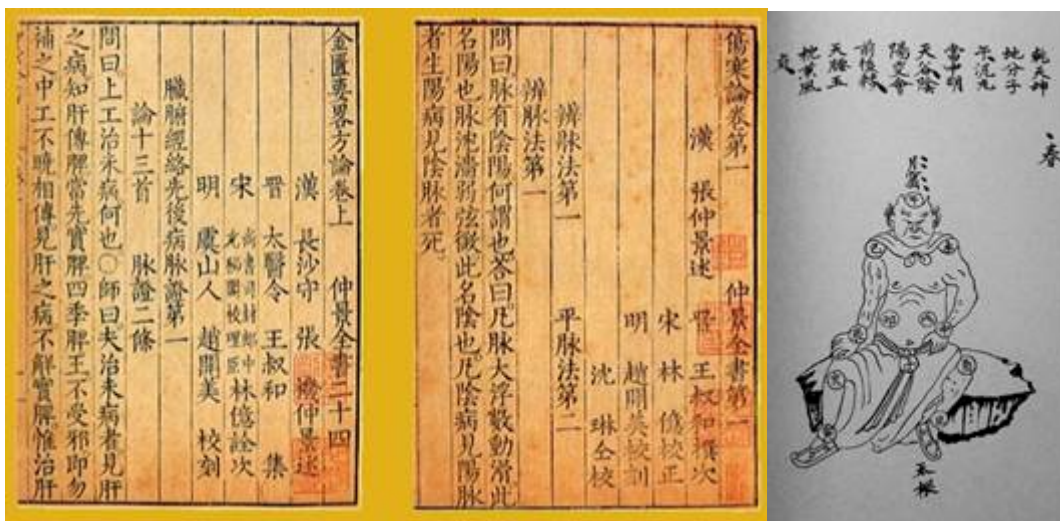 金匱要略方論卷上 仲景全書二十四
漢 長沙守 張 機仲景述
晉 太醫令 王叔和 集
宋 尚書司封郎中充秘閣校理臣林億詮次
明 虞山人 趙開美 校刻
臟腑經絡先後病脉證第一
論十三首 脉證二條
問曰上工治未病何也○師曰夫治未病者見肝
之病知肝傳脾當先實脾四季脾王不受邪即勿
補之中工不曉相傳見肝之病不解實脾惟治肝
傷寒論卷第一 仲景全書第一
漢 張仲景述 晉 王叔和撰次
宋 林 億校正
明 趙開美校刻
沈 琳仝校
辨脉法第一 平脉法第二
辨脉法第一
問曰脉有陰陽何謂也答曰凡脉大浮數動滑此
名陽也脉沈濇弱弦微此名陰也凡陰病見陽脉
者生陽病見陰脉者死
春
天神
地分子
當中明
陽交會
前後
天
風